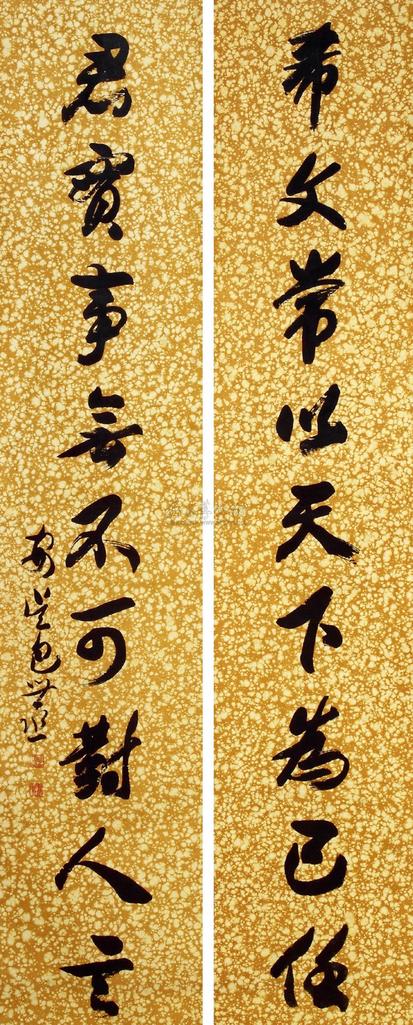 希文常以天下為己任
君實事無不可對人言
安吳包世臣